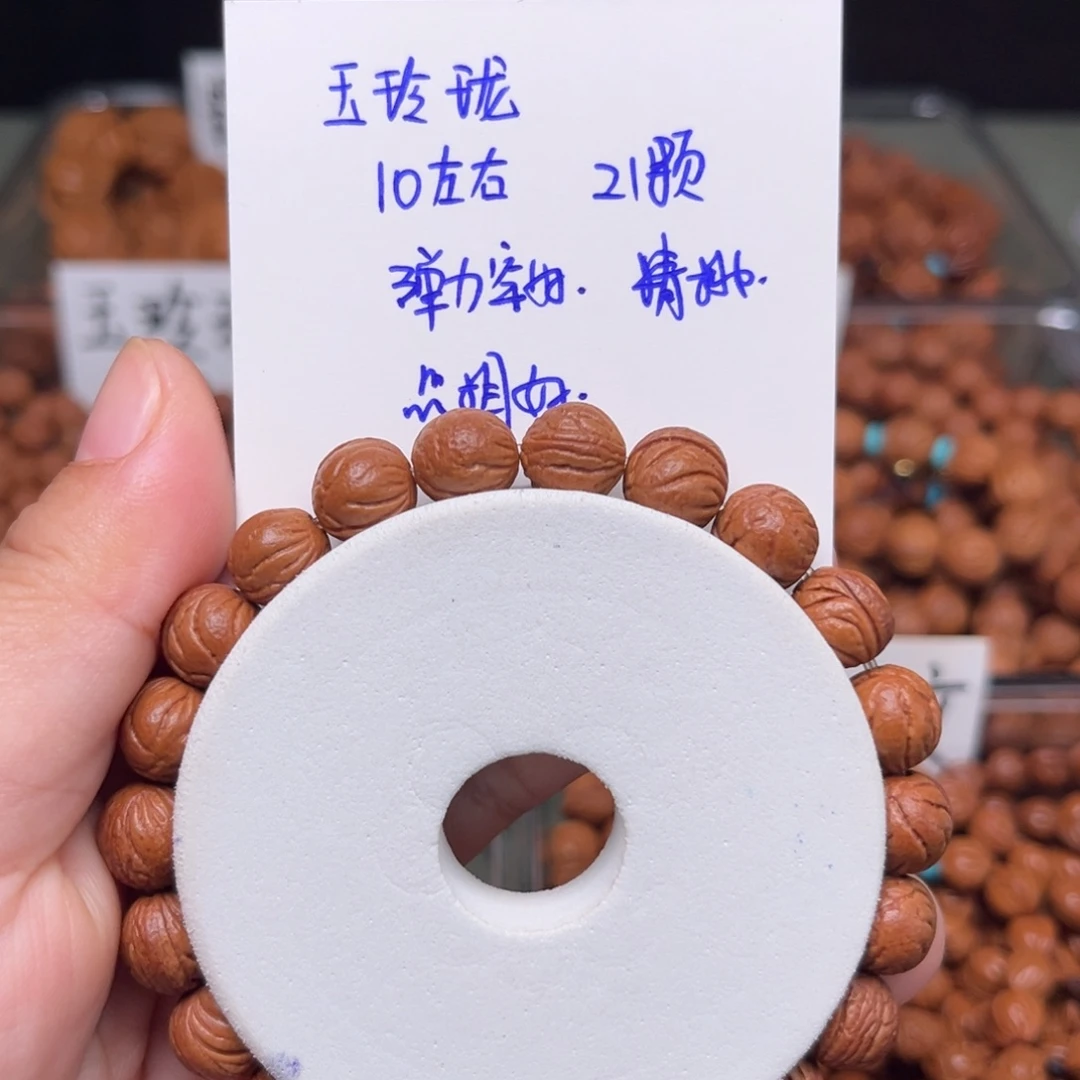 玉玲珑
10左右 21颗
弹力穿好. 精挑.
品相好.
玉玲珑